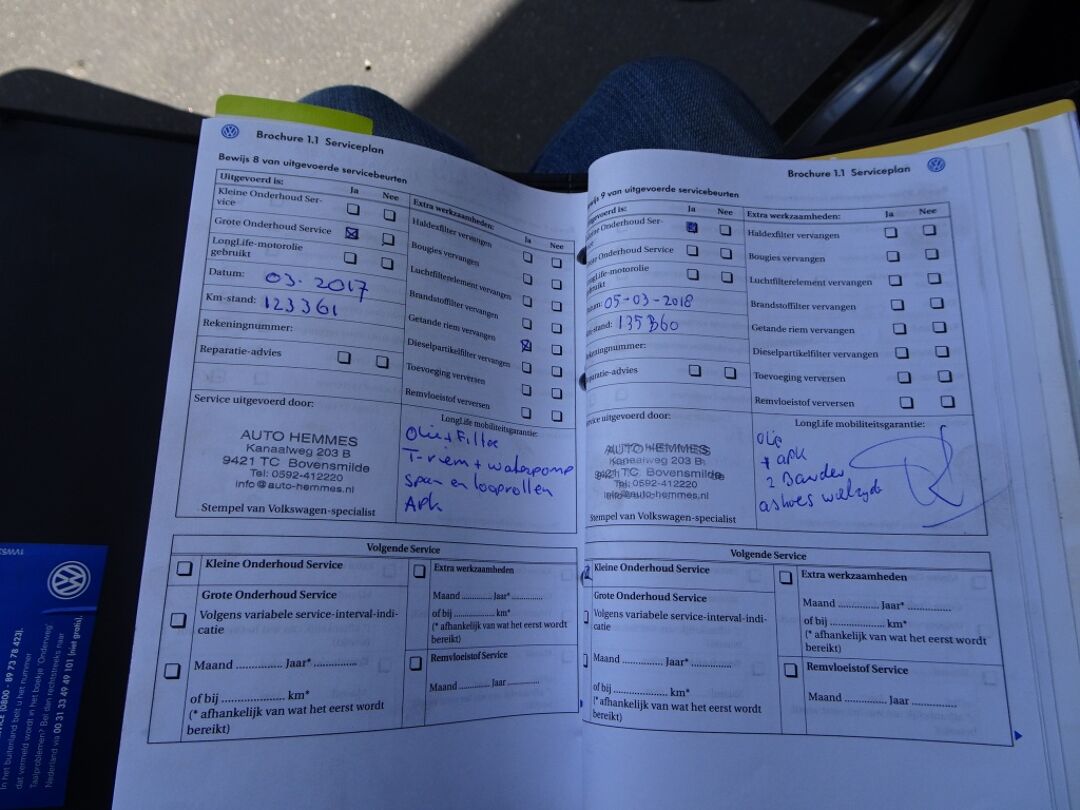 Brochure 1.1 Serviceplan
Bewijs 8 van uitgevoerde servicebeurten
Uitgevoerd is: Ja Nee
Kleine Onderhoud Ser-
vice
Grote Onderhoud Service
LongLife-motorolie
gebruikt
Datum: 03.2017
Km-stand: 123361
Rekeningnummer:
Reparatie-advies
Extra werkzaamheden:
Ja Nee
Haldexfilter vervangen
Bougies vervangen
Luchtfilterelement vervangen
Brandstoffilter vervangen
Getande riem vervangen
Dieselpartikelfilter vervangen
Toevoeging verversen
Remvloeistof verversen
Service uitgevoerd door:
AUTO HEMMES
Kanaalweg 203 B
9421 TC Bovensmilde
Tel: 0592-412220
info@auto-hemmes.nl
Stempel van Volkswagen-specialist
LongLife mobiliteitsgarantie:
Olie + Filter
T-riem + waterpomp
span en looprollen
APK
Volgende Service
Kleine Onderhoud Service
Grote Onderhoud Service
Volgens variabele service-interval-indi-
catie
Maand .............. Jaar* ..............
of bij ..................... km*
(* afhankelijk van wat het eerst wordt
bereikt)
Extra werkzaamheden
Maand ........... Jaar* ...........
of bij ................ km*
(* afhankelijk van wat het eerst wordt
bereikt)
Remvloeistof Service
Maand ........... Jaar ...........
Brochure 1.1 Serviceplan
9 van uitgevoerde servicebeurten
Ja Nee
Kleine Onderhoud Ser-
Grote Onderhoud Service
LongLife-motorolie
05-03-2018
135860
Reparatie-advies
Extra werkzaamheden: Ja Nee
Haldexfilter vervangen
Bougies vervangen
Luchtfilterelement vervangen
Brandstoffilter vervangen
Getande riem vervangen
Dieselpartikelfilter vervangen
Toevoeging verversen
Remvloeistof verversen
Service uitgevoerd door:
AUTO HEMMES
Kanaalweg 203 B
9421 TC Bovensmilde
Tel: 0592-412220
info@auto-hemmes.nl
Stempel van Volkswagen-specialist
LongLife mobiliteitsgarantie:
olie
+ apk
2 Banden
Volgende Service
Kleine Onderhoud Service
Grote Onderhoud Service
Volgens variabele service-interval-indi-
catie
Maand .............. Jaar* ..............
of bij ..................... km*
(* afhankelijk van wat het eerst wordt
bereikt)
Extra werkzaamheden
Maand .............. Jaar* ..............
of bij ..................... km*
(* afhankelijk van wat het eerst wordt
bereikt)
Remvloeistof Service
Maand .............. Jaar ..............
(0800 - 89 73 78 423).
In het buitenland belt u het nummer
dat vermeld wordt in het boekje 'Onderweg'
Taalproblemen? Bel dan rechtstreeks naar
Nederland via 00 31 33 49 49 101 (niet gratis).